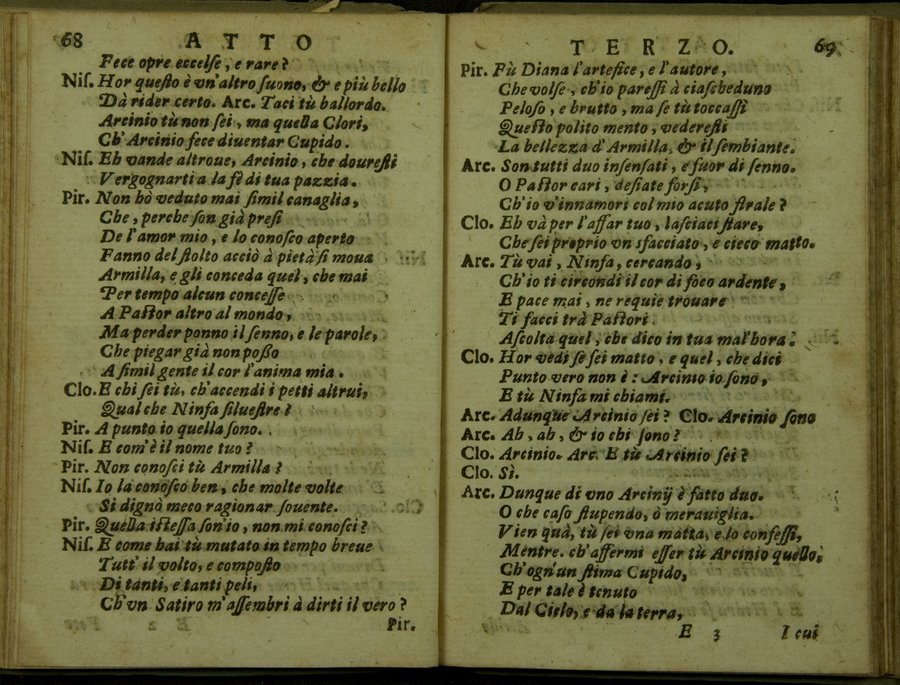 68 ATTO
Fece opre eccelſe, e rare?
Niſ. Hor queſto è vn'altro ſuono, & e più bello
Dà rider certo. Arc. Taci tù ballordo.
Arcinio tù non ſei, ma quella Clori,
Ch'Arcinio fece diuentar Cupido.
Niſ. Eh vande altroue, Arcinio, che doureſti
Vergognarti a la fè di tua pazzia.
Pir. Non hò veduto mai ſimil canaglia,
Che, perche ſon già preſi
De l'amor mio, e lo conoſco aperto
Fanno del ſtolto acciò à pietà ſi moua
Armilla, e gli conceda quel, che mai
Per tempo alcun conceſſe
A Paſtor altro al mondo,
Ma perder ponno il ſenno, e le parole,
Che piegar già non poßo
A ſimil gente il cor l'anima mia.
Clo. E chi ſei tù, ch'accendi i petti altrui,
Qual che Ninfa ſilueſtre?
Pir. A punto io quella ſono.
Niſ. E com'è il nome tuo?
Pir. Non conoſci tù Armilla?
Niſ. Io la conoſco ben, che molte volte
Si dignò meco ragionar ſouente.
Pir. Quella iſteſſa ſon'io, non mi conoſci?
Niſ. E come hai tù mutato in tempo breue
Tutt'il volto, e compoſto
Di tanti, e tanti peli,
Ch'vn Satiro m'aſſembri à dirti il vero?
E 2 Pir.
TERZO. 69
Pir. Fù Diana l'artefice, e l'autore,
Che volſe, ch'io pareſſi à ciaſcheduno
Peloſo, e brutto, ma ſe tù toccaſſi
Queſto polito mento, vedereſti
La bellezza d'Armilla, & il ſembiante.
Arc. Son tutti duo inſenſati, e fuor di ſenno.
O Paſtor cari, deſiate forſi,
Ch'io v'innamori col mio acuto ſtrale?
Clo. Eh và per l'affar tuo, laſciaci ſtare,
Che ſei proprio vn sfacciato, e cieco matto.
Arc. Tù vai, Ninfa, cercando,
Ch'io ti circondi il cor di foco ardente,
E pace mai, ne requie trouare
Ti facci trà Paſtori.
Aſcolta quel, che dico in tua mal'hora.
Clo. Hor vedi ſe ſei matto, e quel, che dici
Punto vero non è: Arcinio io ſono,
E tù Ninfa mi chiami.
Arc. Adunque Arcinio ſei? Clo. Arcinio ſono
Arc. Ah, ah, & io chi ſono?
Clo. Arcinio. Arc. E tù Arcinio ſei?
Clo. Sì.
Arc. Dunque di vno Arcinÿ è fatto duo.
O che caſo ſtupendo, ò merauiglia.
Vien quà, tù ſei vna matta, e lo confeſſi,
Mentre. ch'affermi eſſer tù Arcinio quello,
Ch'ogn'un ſtima Cupido,
E per tale è tenuto
Dal Cielo, e da la terra,
E 3 I cui